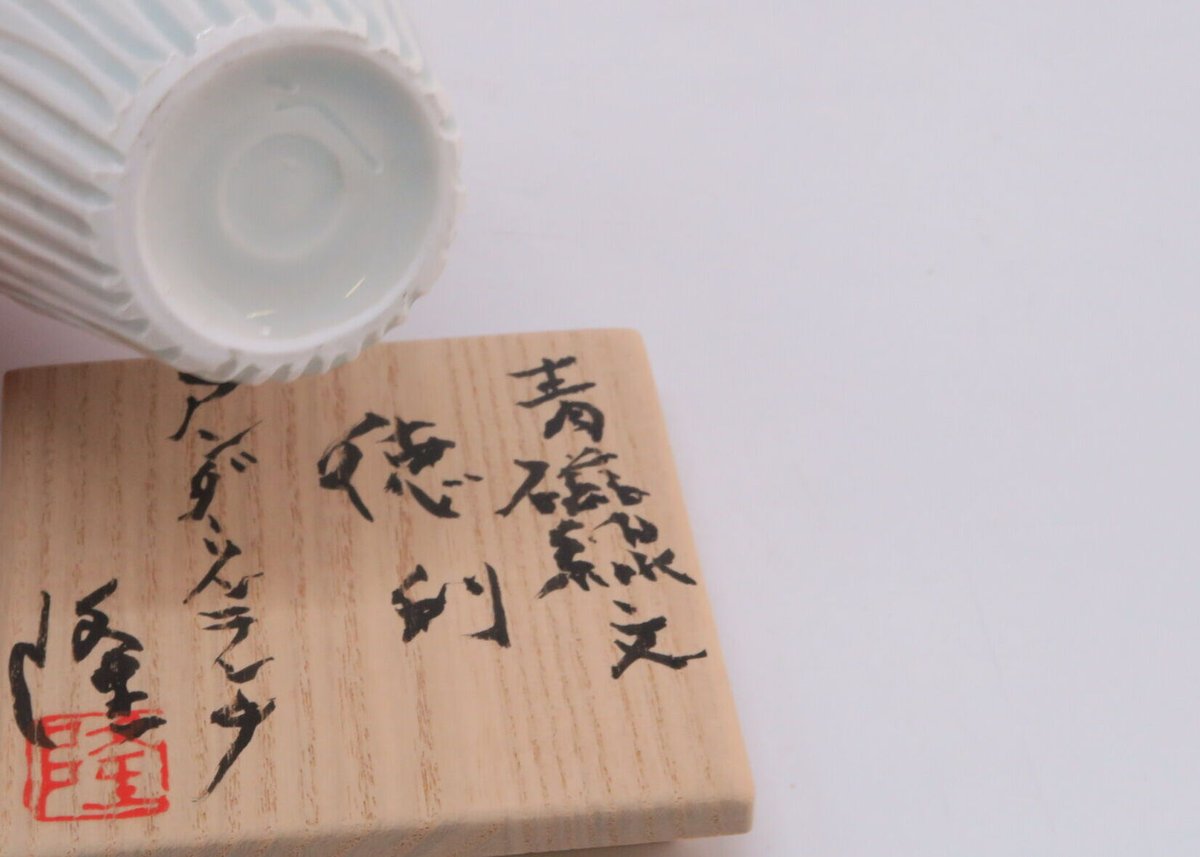 青磁線文
徳利
アンダーソンランチ
隆
隆